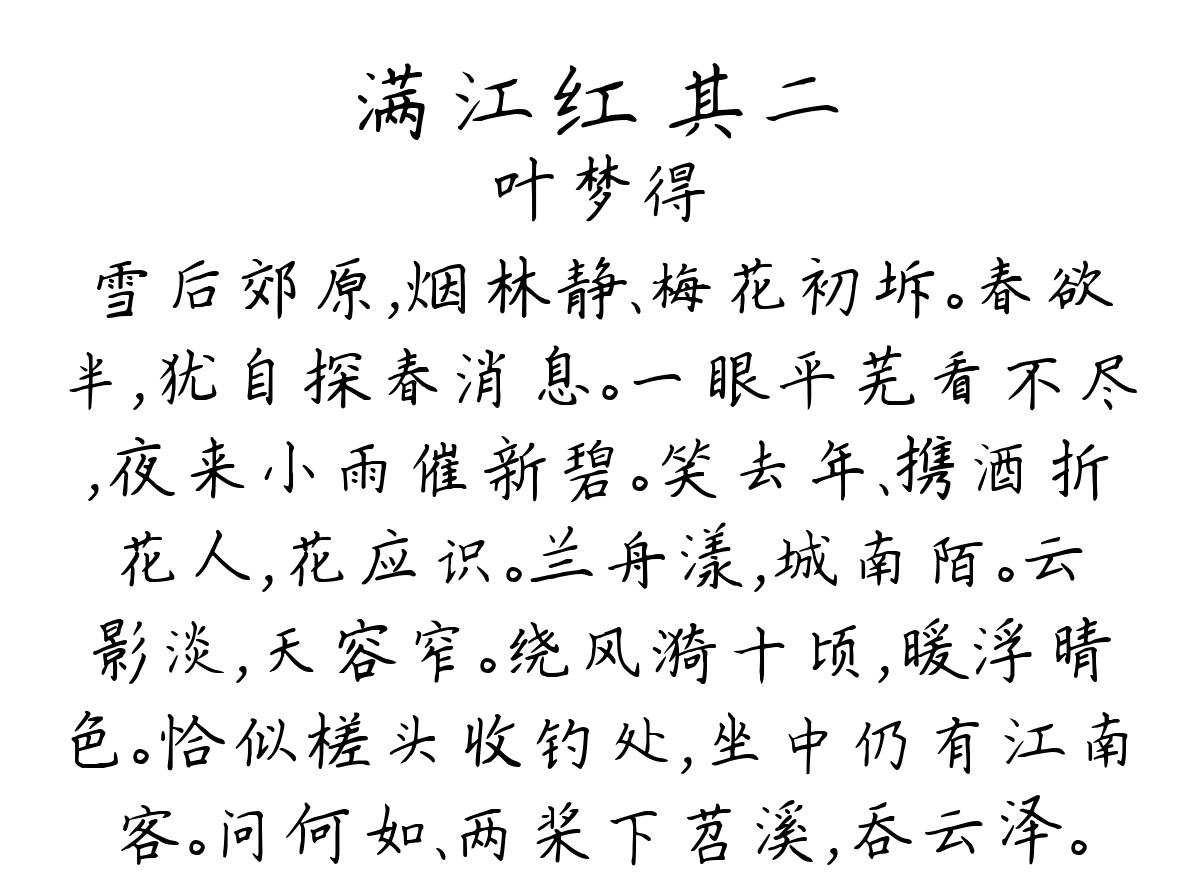 满江红 其二
叶梦得
雪后郊原,烟林静、梅花初坼。春欲
半,犹自探春消息。一眼平芜看不尽
,夜来小雨催新碧。笑去年、携酒折
花人,花应识。兰舟漾,城南陌。云
影淡,天容窄。绕风漪十顷,暖浮晴
色。恰似槎头收钓处,坐中仍有江南
客。问何如、两桨下苕溪,吞云泽。